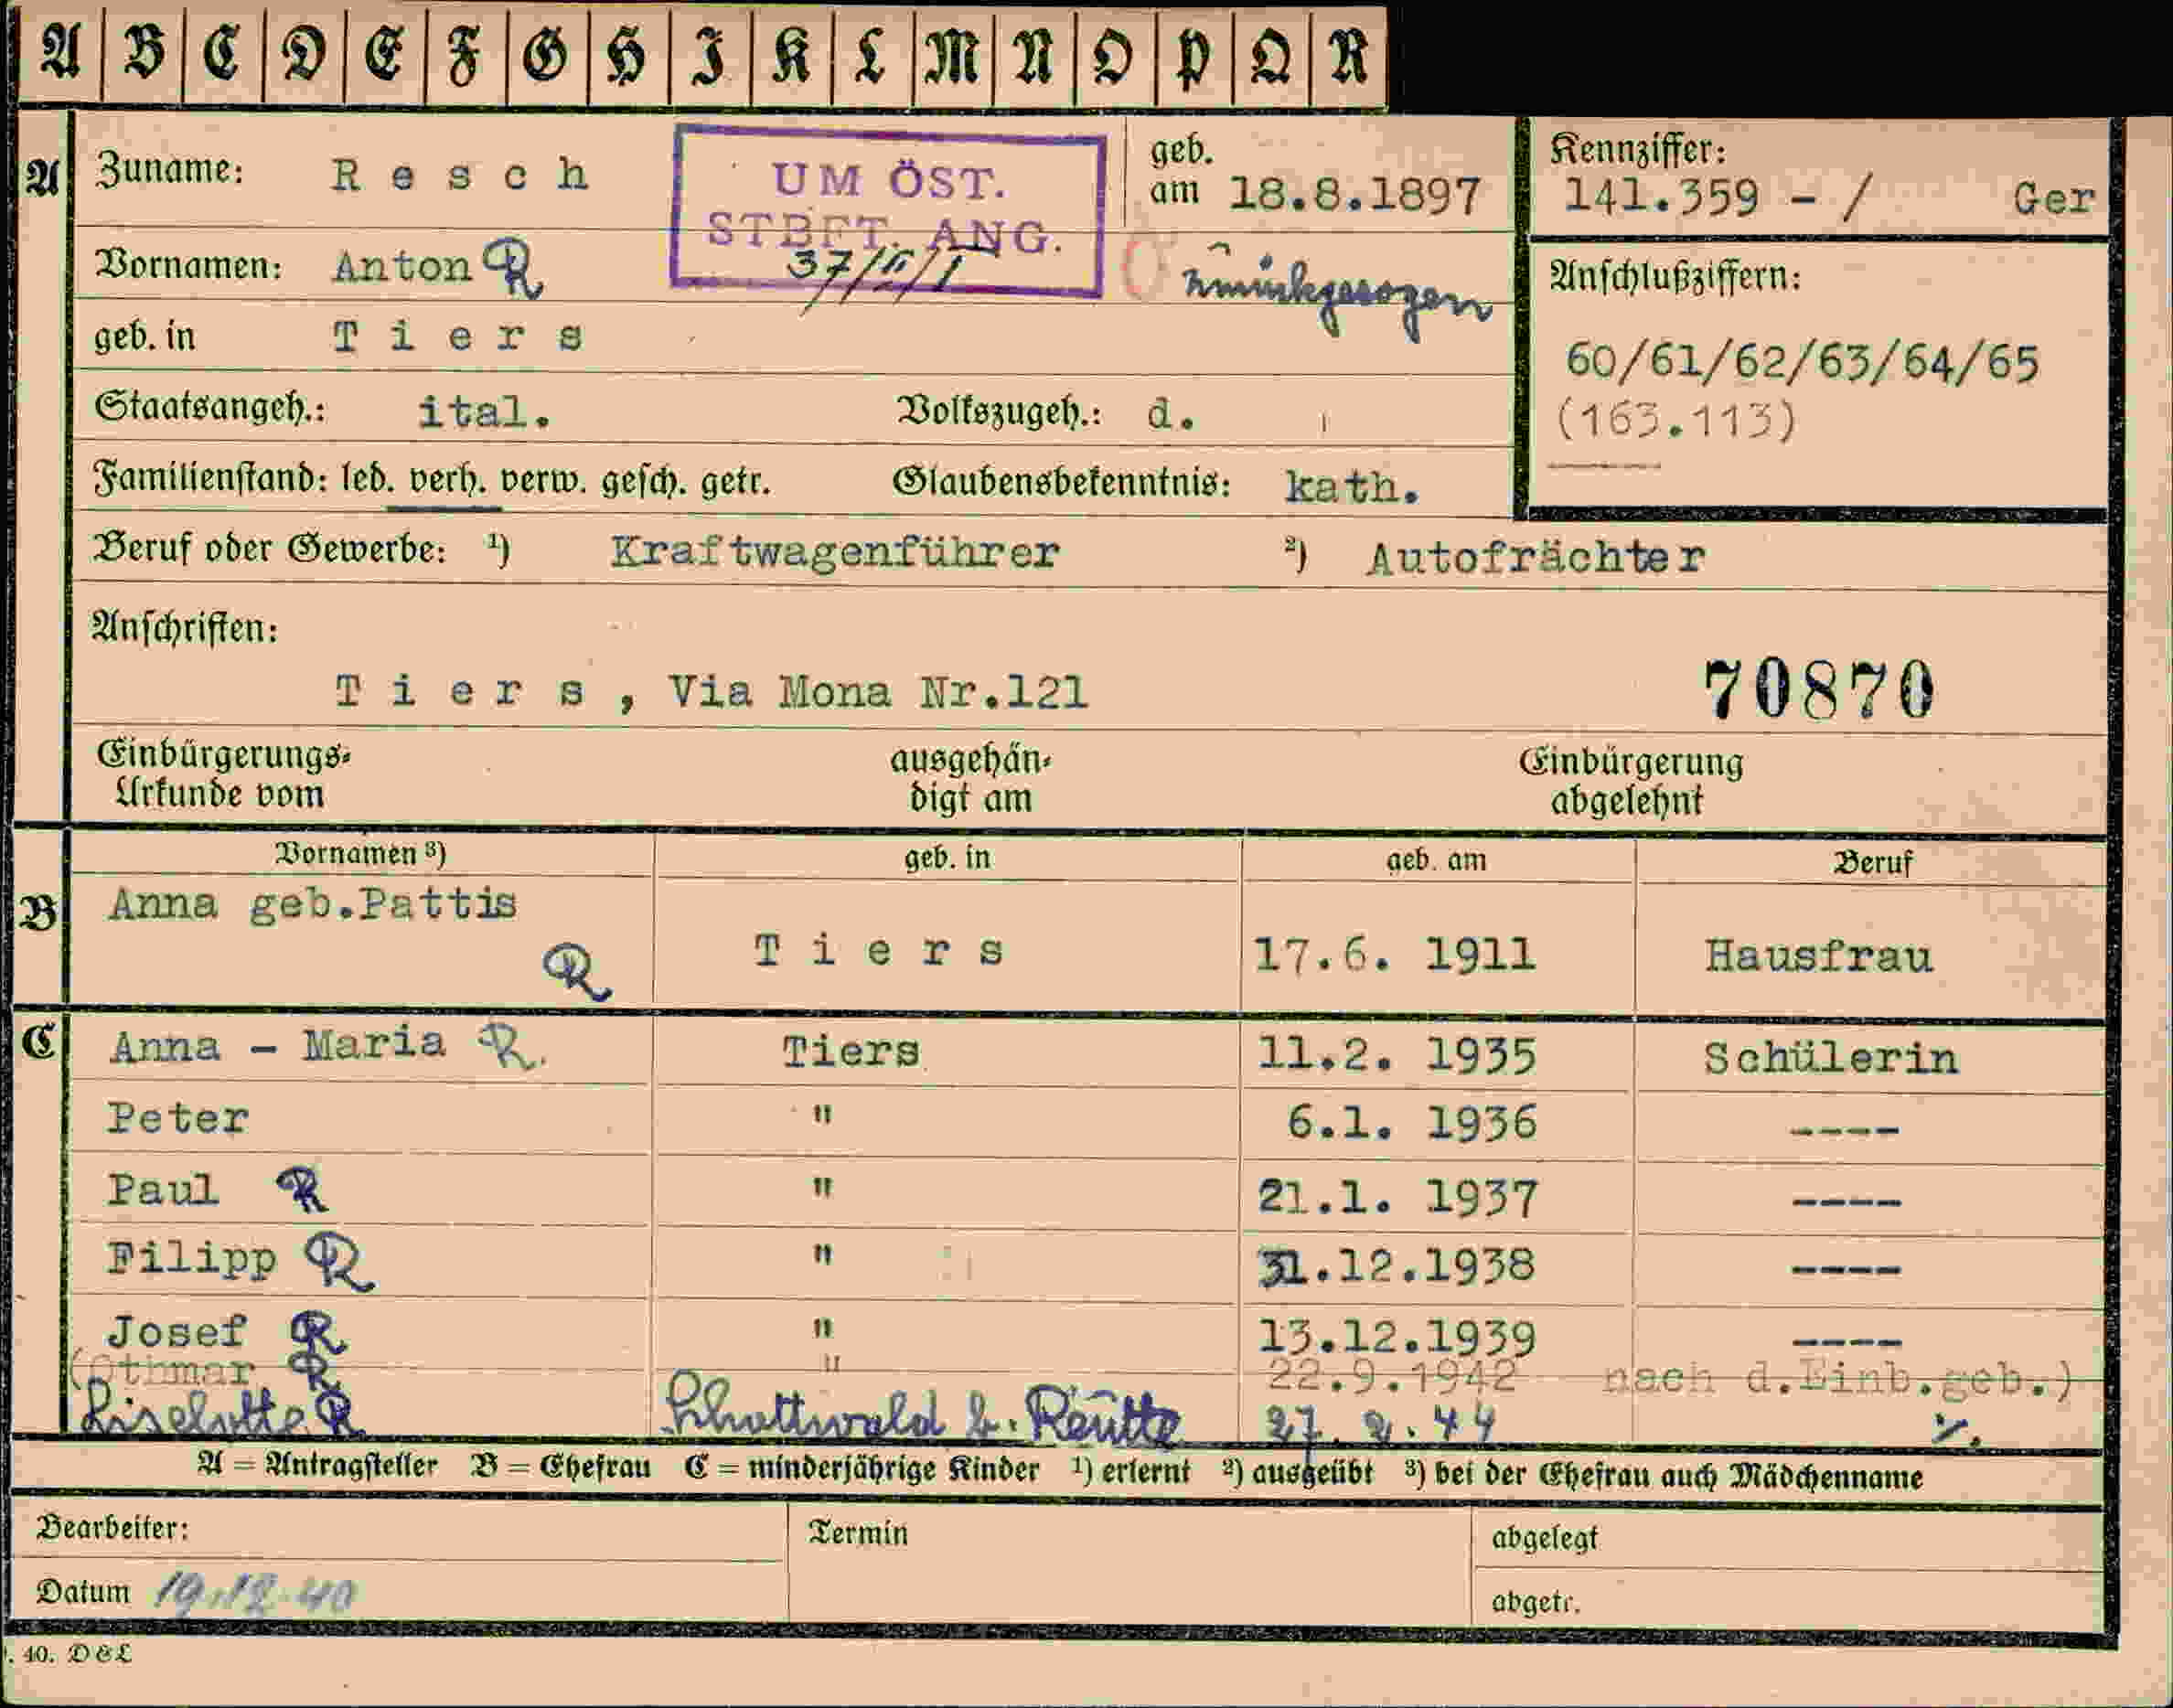 A B C D E F G H I K L M N O P Q R
A Zuname: Resch
UM ÖST.
STBFT. ANG.
37/II/1
geb.
am 18.8.1897
Kennziffer:
141.359 - / Ger
Vornamen: Anton R
zurückgezogen
Anschlußziffern:
geb. in Tiers
60/61/62/63/64/65
Staatsangeh.: ital. Volkszugeh.: d.
(163.113)
Familienstand: led. verh. verw. gesch. getr. Glaubensbekenntnis: kath.
Beruf oder Gewerbe: ¹) Kraftwagenführer ²) Autofrächter
Anschriften:
Tiers, Via Mona Nr.121 70870
Einbürgerungs- ausgehän- Einbürgerung
Urkunde vom digt am abgelehnt
Vornamen ³) geb. in geb. am Beruf
B Anna geb.Pattis
R Tiers 17.6. 1911 Hausfrau
C Anna - Maria R. Tiers 11.2. 1935 Schülerin
Peter " 6.1. 1936 ----
Paul R " 21.1. 1937 ----
Filipp R " 31.12.1938 ----
Josef R " 13.12.1939 ----
(Othmar R " 22.9.1942 nach d.Einb.geb.)
Liselotte R Schattwald b. Reutte 27.2.44 %.
A = Antragsteller B = Ehefrau C = minderjährige Kinder ¹) erlernt ²) ausgeübt ³) bei der Ehefrau auch Mädchenname
Bearbeiter: Termin abgelegt
Datum 19.12.40 abgetr.
. 40. D&L